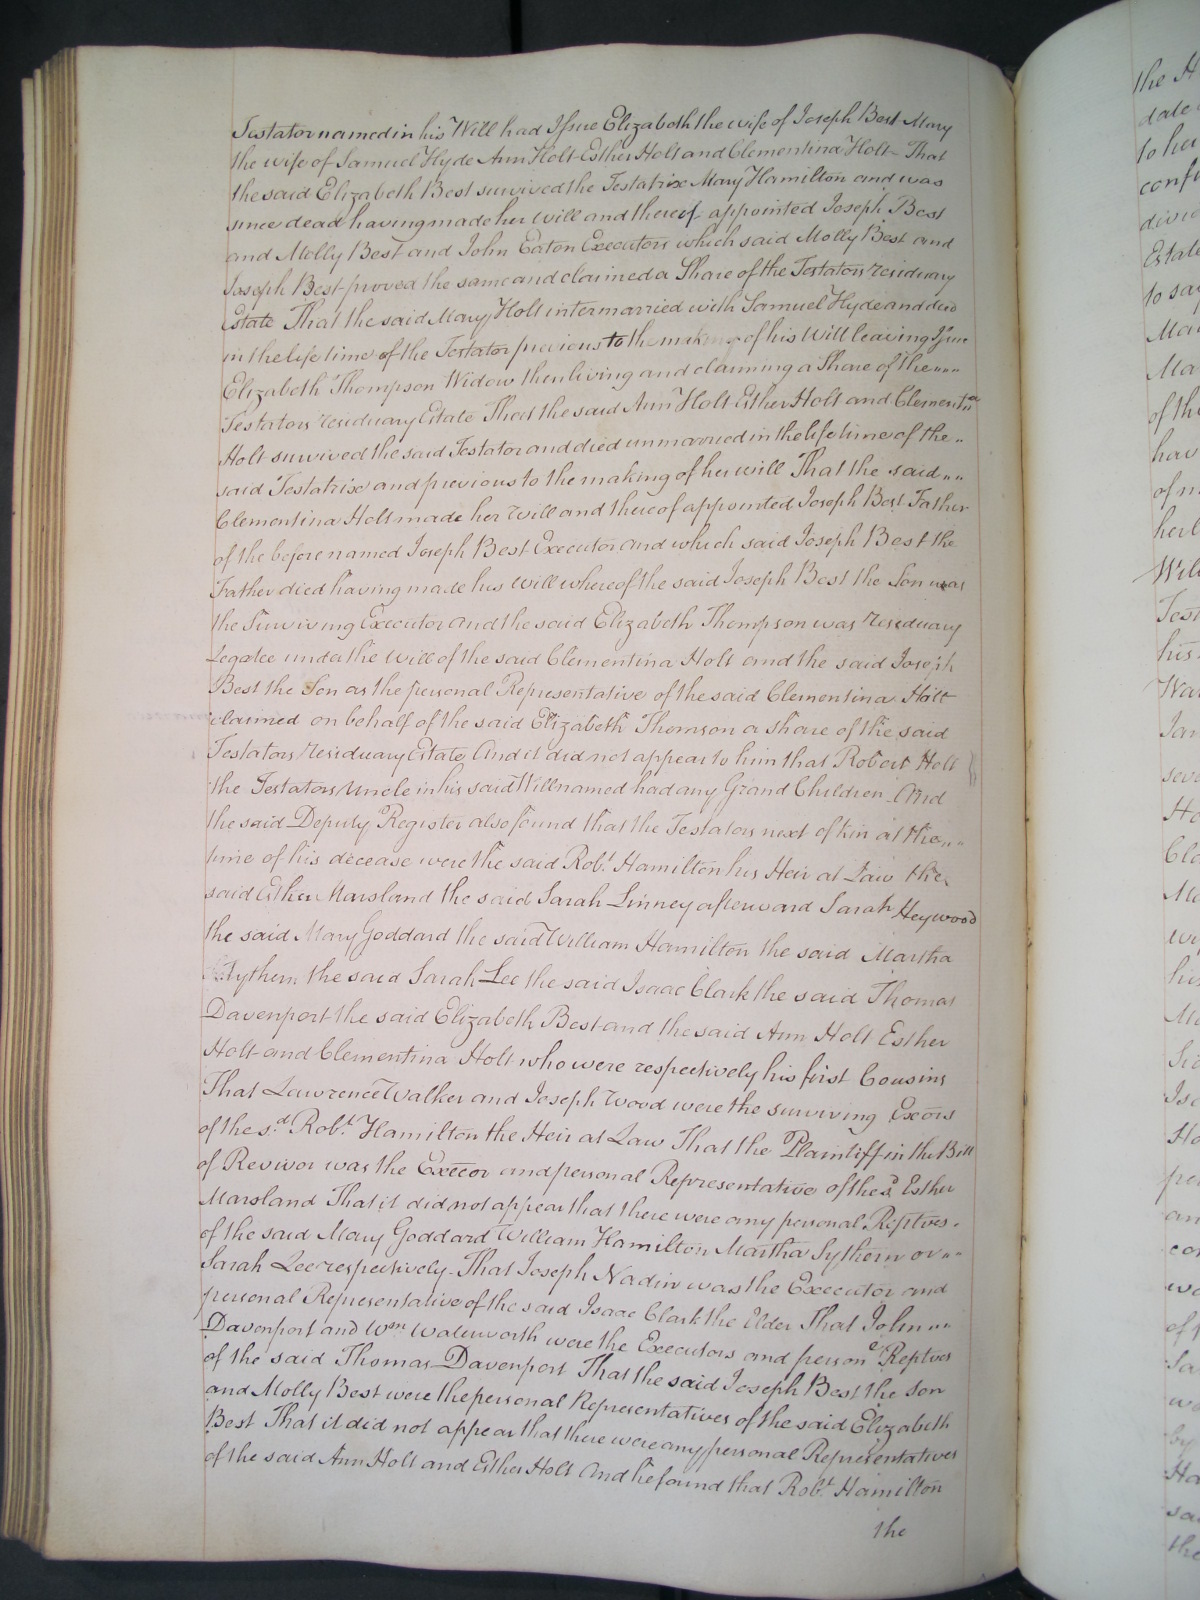 Testator named in his Will had Issue Elizabeth the wife of Joseph Best Mary
the wife of Samuel Hyde Ann Holt Esther Holt and Clementina Holt – That
the said Elizabeth Best survived the Testatrix Mary Hamilton and was
since dead having made her Will and thereof appointed Joseph Best
and Molly Best and John Eaton Executors which said Molly Best and
Joseph Best proved the same and claimed a Share of the Testators residuary
Estate That the said Mary Holt intermarried with Samuel Hyde and died
in the life time of the Testator previous to the making of his Will leaving Issue
Elizabeth Thompson Widow then living and claiming a Share of the „„
Testators residuary Estate That the said Ann Holt Esther Holt and Clementina
Holt survived the said Testator and died unmarried in the life time of the „
said Testatrix and previous to the making of her will That the said „„
Clementina Holt made her Will and thereof appointed Joseph Best Father
of the before named Joseph Best Executor and which said Joseph Best the
Father died having made his Will whereof the said Joseph Best the Son was
the Surviving Executor and the said Elizabeth Thompson was residuary
Legatee under the Will of the said Clementina Holt and the said Joseph
Best the Son as the personal Representative of the said Clementina Holt
claimed on behalf of the said Elizabeth Thomson a share of the said
Testators residuary Estate And it did not appear to him that Robert Holt
the Testators Uncle in his said Will named had any Grand Children And
the said Deputy Register also found that the Testators next of kin at the „„
time of his decease were the said Robt. Hamilton his Heir at Law the
said Esther Marsland the said Sarah Linney afterward Sarah Heywood
the said Mary Goddard the said William Hamilton the said Martha
Sythern the said Sarah Lee the said Isaac Clark the said Thomas
Davenport the said Elizabeth Best and the said Ann Holt Esther
Holt and Clementina Holt who were respectively his first Cousins
That Lawrence Walker and Joseph Wood were the surviving Exors
of the sd. Robt. Hamilton the Heir at Law That the Plaintiff in the Bill
of Revivor was the Execor and personal Representative of the sd. Esther
Marsland That it did not appear that there were any personal Reptves.
of the said Mary Goddard William Hamilton Martha Sythern or „„
Sarah Lee respectively – That Joseph Nadin was the Executor and
personal Representative of the said Isaac Clark the Elder That John „„
Davenport and Wm. Waterworth were the Executors and personl Reptves
of the said Thomas Davenport That the said Joseph Best the Son
and Molly Best were the personal Representatives of the said Elizabeth
Best That it did not appear that there were any personal Representatives
of the said Ann Holt and Esther Holt And he found that Robt. Hamilton
the